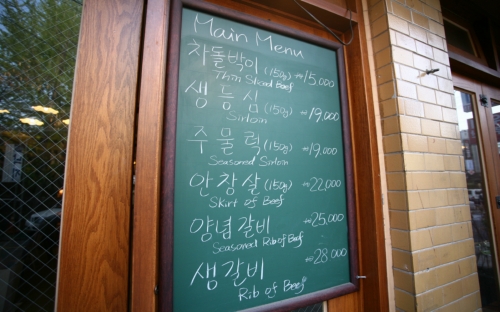 Main Menu
차돌박이 (150g) ₩15,000
Thin Sliced Beef
생등심 (150g) ₩19,000
Sirloin
주물럭 (150g) ₩19,000
Seasoned Sirloin
안창살 (150g) ₩22,000
Skirt of Beef
양념갈비 ₩25,000
Seasoned Rib of Beef
생갈비 ₩28,000
Rib of Beef